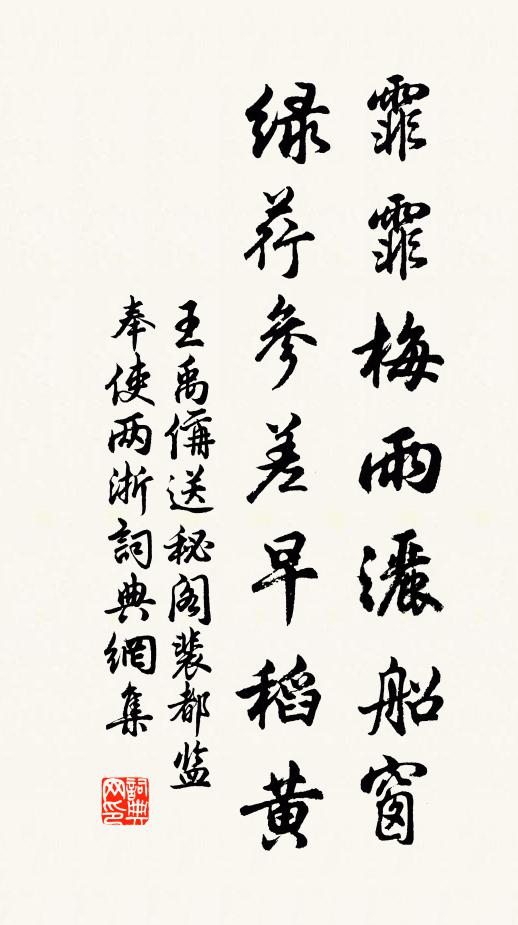 霏霏梅雨灑船窗
緑荇參差早稻黄
王禹偁送秘阁裴都监
奉使两浙詞典網集
詞典网印